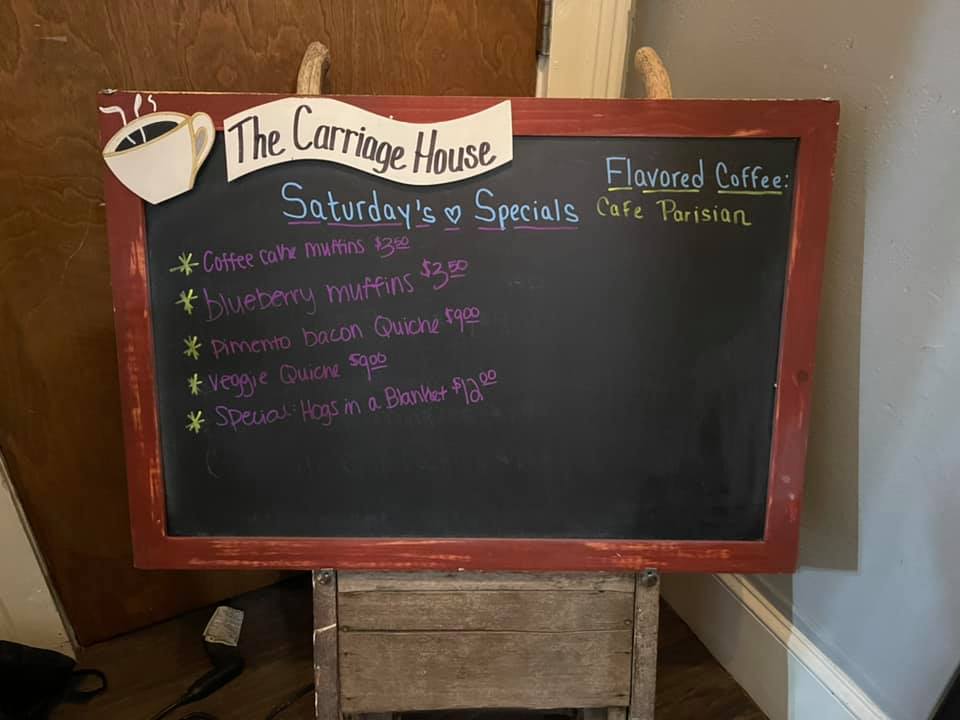 The Carriage House
Saturday's ♡ Specials
* Coffee cake muffins $3.50
* blueberry muffins $3.50
* pimento bacon Quiche $9.00
* veggie Quiche $9.00
* Special: Hogs in a Blanket $12.00
Flavored Coffee:
Cafe Parisian